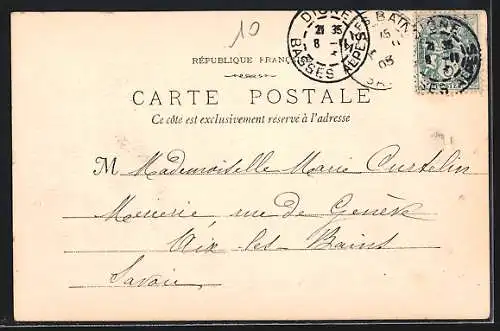 10
DIGNE
21 35
8 - 11
BASSES ALPES
BAINS
15
03
DIGNE
RÉPUBLIQUE FRANÇ
CARTE POSTALE
Ce côté est exclusivement réservé à l'adresse
M Mademoiselle Marie Curtelin
Mercerie rue de Genève
Aix les Bains
Savoie